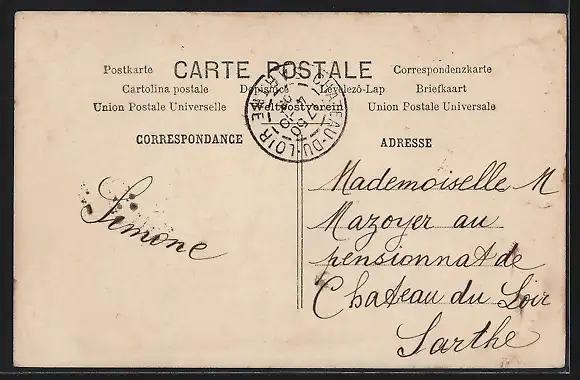 CARTE POSTALE
Postkarte Correspondenzkarte
Cartolina postale Dopisnice Levelező-Lap Briefkaart
Union Postale Universelle Weltpostverein Union Postale Universale
CORRESPONDANCE
ADRESSE
CHATEAU-DU-LOIR
SARTHE
Simone
Mademoiselle M
Mazoyer au
pensionnat de
Chateau du Loir
Sarthe